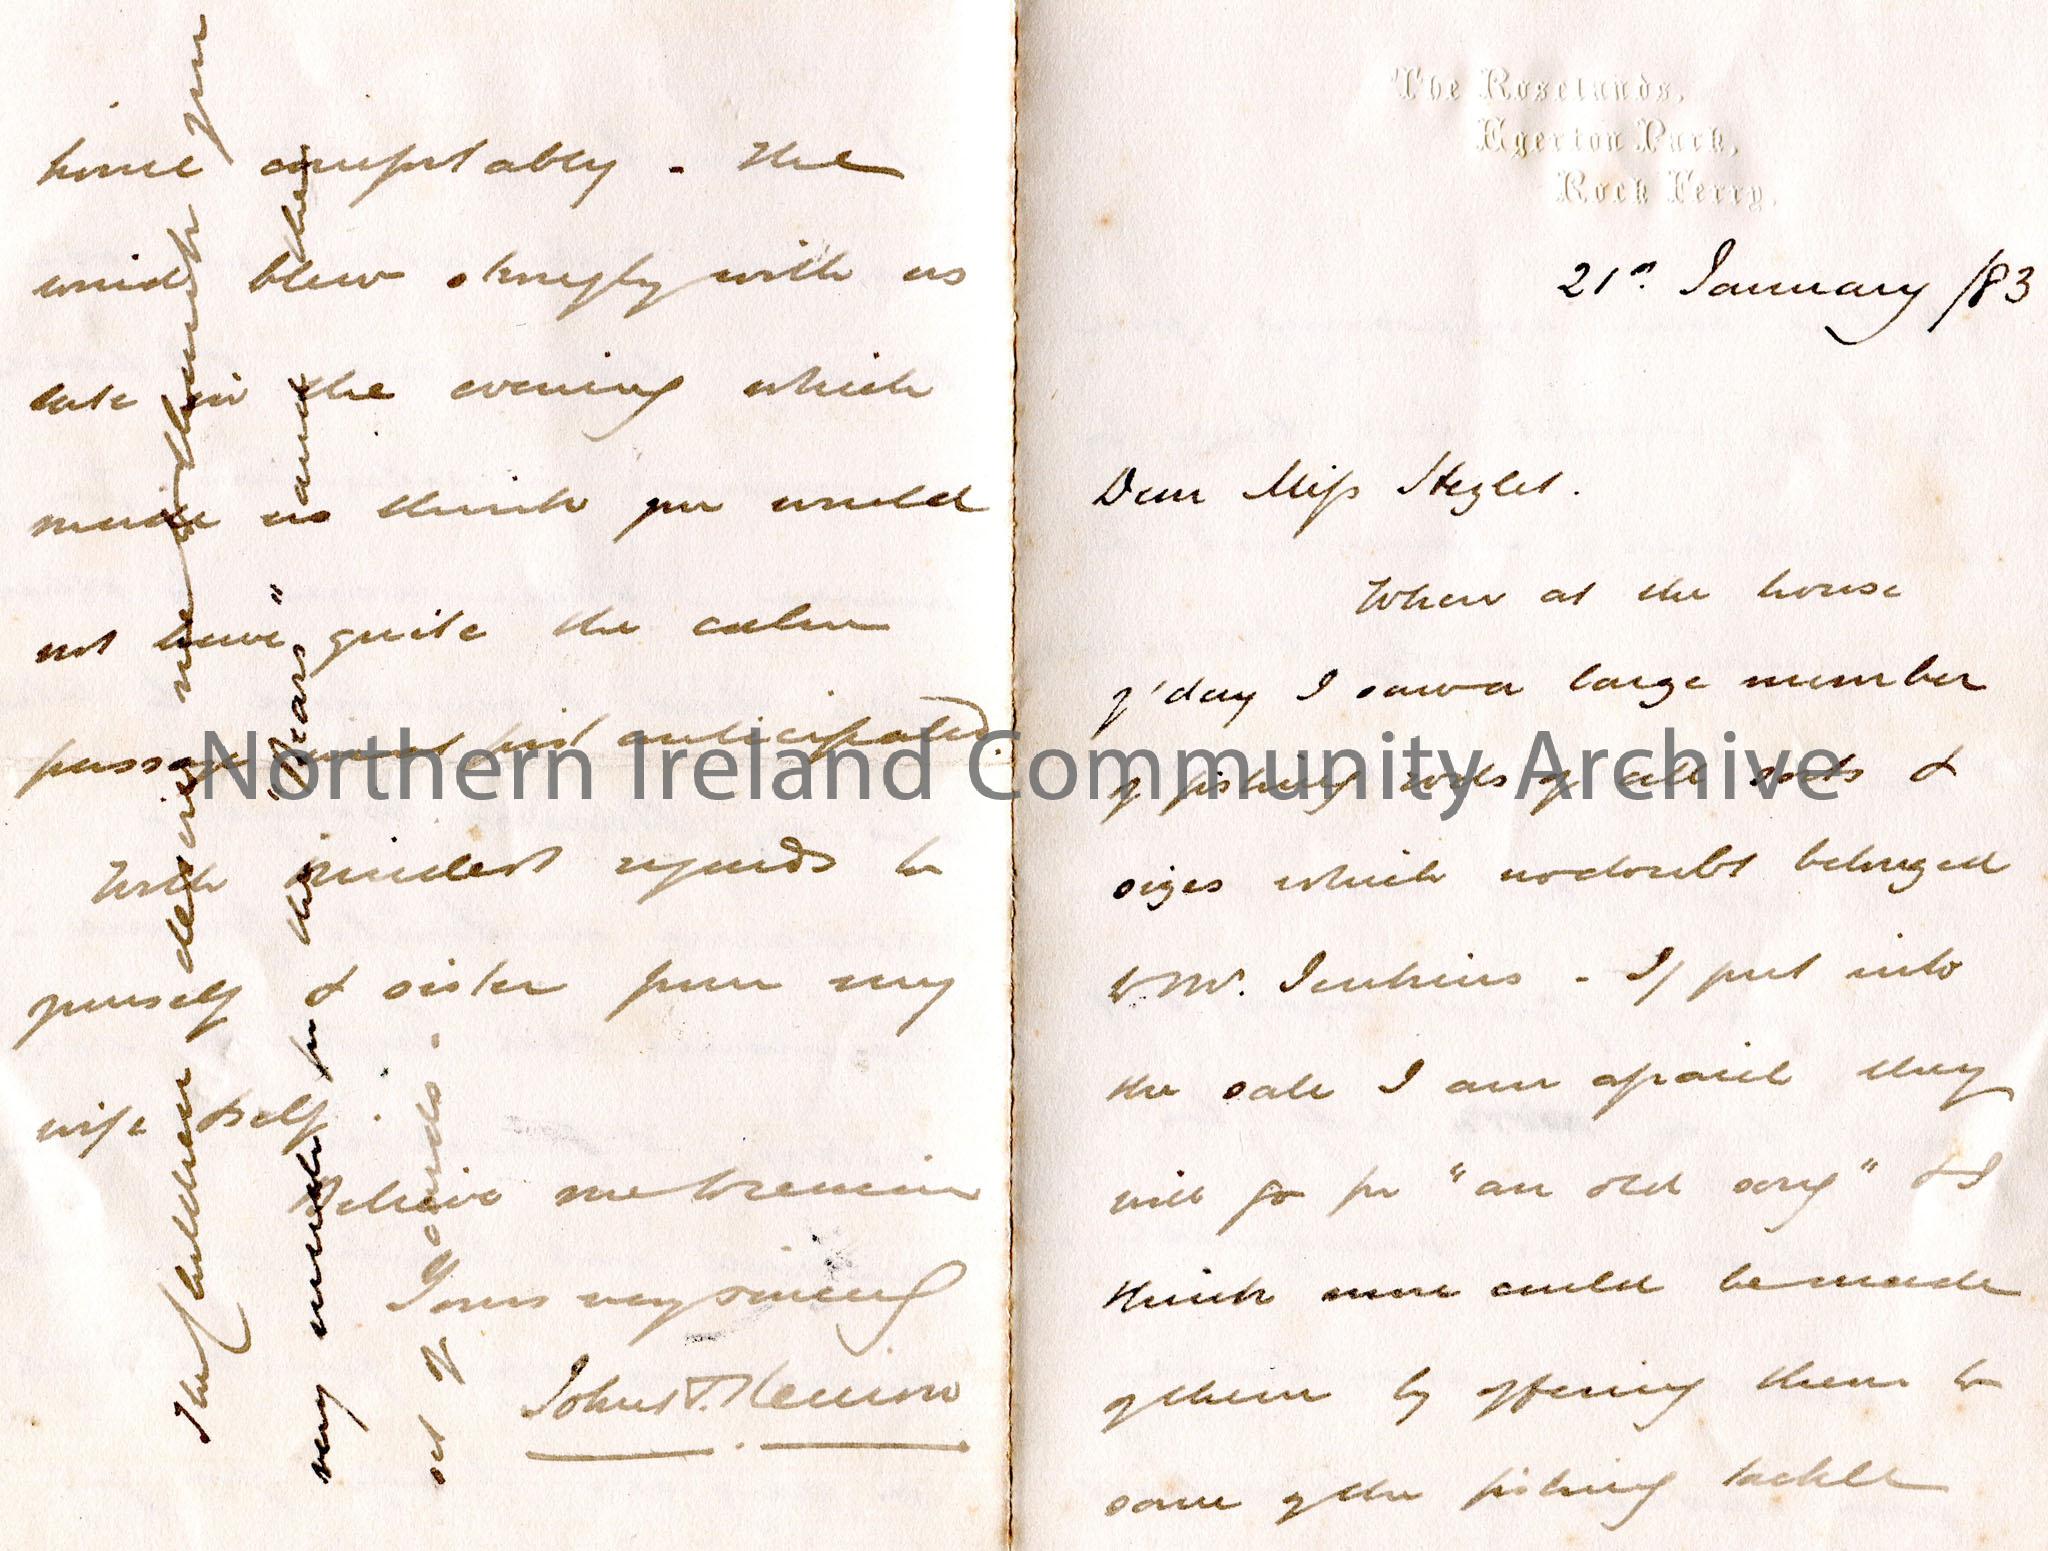 The Roselands,
Egerton Park,
Rock Ferry.
21st January /83
Dear Miss Hezlet.
When at the house
y'day I saw a large number
of fishing rods of all sorts &
sizes which no doubt belonged
to Mr. Jenkins - If put into
the sale I am afraid they
will go for "an old song" & I
think more could be made
of them by offering them to
some of the fishing tackle
home comfortably - The
wind blew strongly with us
late in the evening which
made us think you would
not have quite the calm
passage first anticipated.
With kindest regards to
yourself & sister from my
wife & self.
Believe me to remain
Yours very sincerely
John T.
The children desired me to thank you
very much for the "Bears" and their
set of cards.
Northern Ireland Community Archive